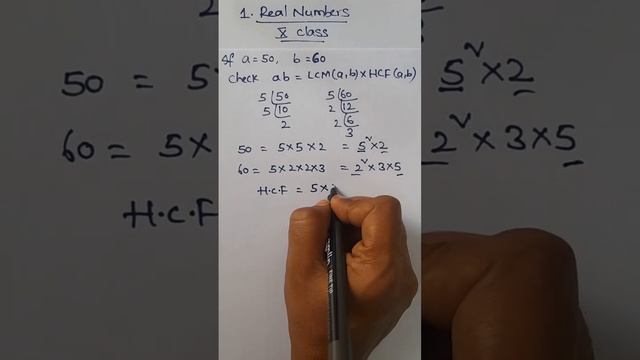 1. Real Numbers
X class
If a=50, b=60
check ab = LCM(a,b)×HCF(a,b)
5 50 5 60
5 10 2 12
2 2 6
3
50 = 5×5×2 = 5²×2
60 = 5×2×2×3 = 2²×3×5
H.C.F = 5×